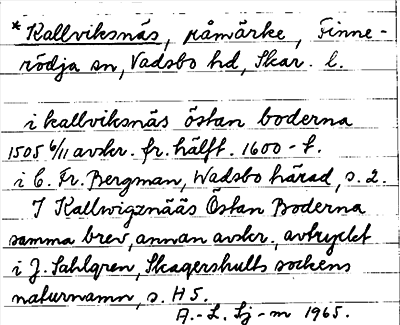 *Kallviksnäs, råmärke, Finne-
rödja sn, Vadsbo hd, Skar. l.
i kallviksnäs östan boderna
1505 6/11 avskr. fr. hälft. 1600-t.
i C. Fr. Bergman, Wadsbo härad, s. 2.
I Kallwigznääs Östan Boderna
samma brev, annan avskr., avtryckt
i J. Sahlgren, Skagershults sockens
naturnamn, s. H5.
A.-L. Sj-m 1965.